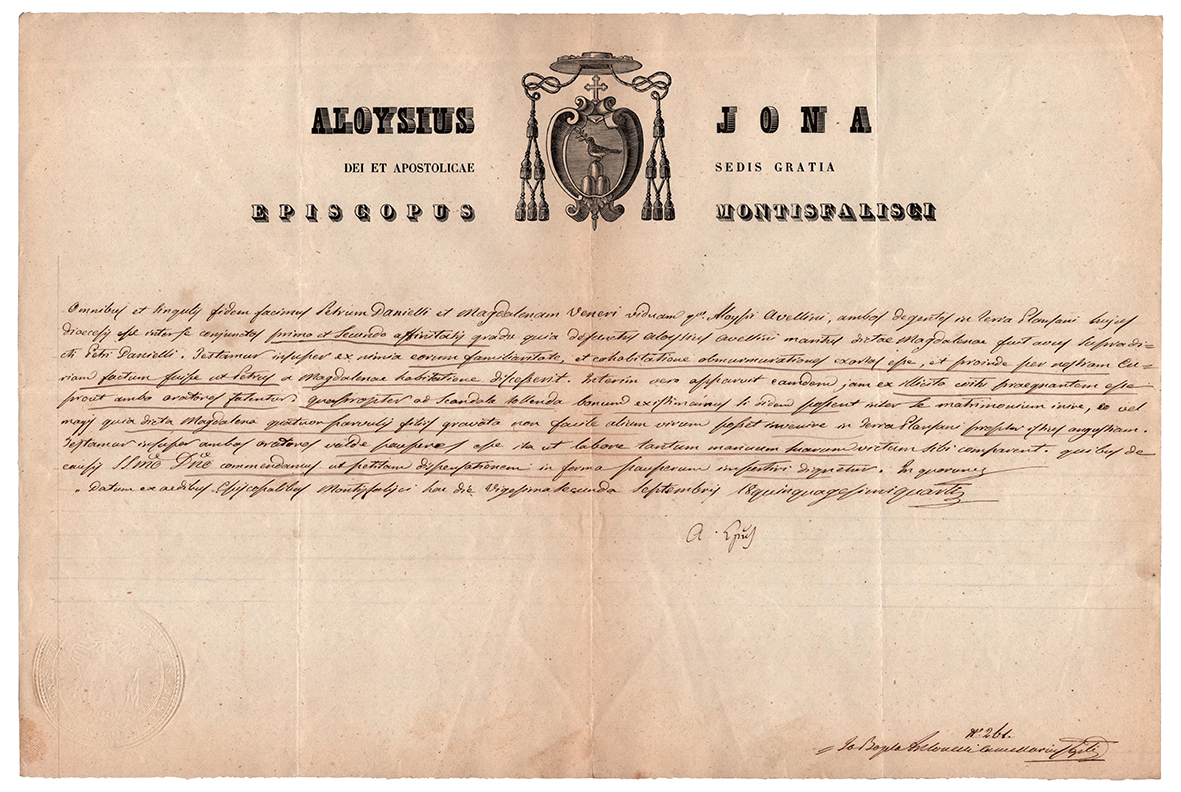 ALOYSIUS JONA
DEI ET APOSTOLICAE SEDIS GRATIA
EPISCOPUS MONTISFALISCI
Omnibus et singulis fidem facimus Petrum Danielli et Magdalenam Veneri viduam qm. Aloysii Avellini, ambos degentes in Terra Plansani hujus
dioecesis esse inter se conjunctos primo et secundo affinitatis gradu quia defunctus Aloysius Avellini maritus dictae Magdalenae fuit avus supradi-
cti Petri Danielli. Testamur insuper ex nimia eorum familiaritate, et cohabitatione obmurmurationes exortas esse, et proinde per nostram Cu-
riam factum fuisse ut Petrus a Magdalenae habitatione discesserit. Interim vero apparuit eamdem jam ex illicito coitu praegnantem esse
prout ambo oratores fatentur: quapropter ad scandala tollenda bonum existimamus si iidem possent inter se matrimonium inire, eo vel
magis quia dicta Magdalena quatuor parvulis filiis gravata non facile alium virum posset invenire in Terra Plansani propter istius angustiam.
Testamur insuper ambos oratores valde pauperes esse ita ut labore tantum manuum suarum victum sibi comparent. quibus de
causis SSmo Dno commendamus ut petitam dispensationem in forma pauperum impertiri dignetur. In quorum
Datum ex aedibus Episcopalibus Montisfalisci hac die Vigesima secunda Septembris 18quinquagesimiquarti
A. Epus
No 261.
Jo Bapta Antonelli Cancellarius